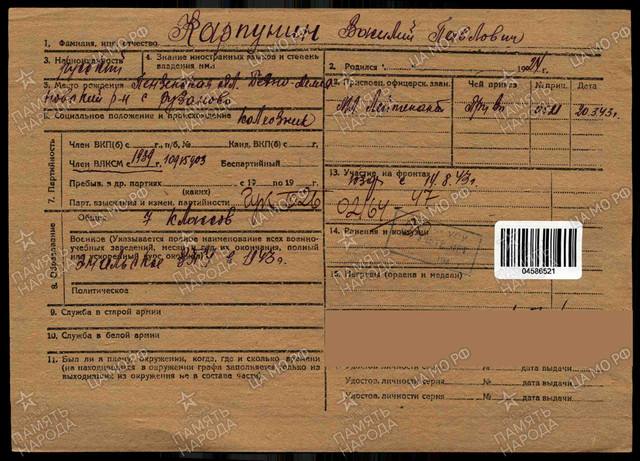 1. Фамилия, имя, отчество Карпунин Василий Павлович
3. Национальность русский
4. Знание иностранных языков и степень владения ими
2. Родился 1924 г.
5. Место рождения Пензенская обл.
р-н с.
6. Социальное положение и происхождение колхозник
4. Присвоен. офицерск. зван. Чей приказ № приц. Дата
Мл. Лейтенант 0511 20.3.43г.
7. Партийность
Член ВКП(б) с г., п/б, № Канд. ВКП(б) с г.
Член ВЛКСМ с 1939 г. 10915903 Беспартийный
Пребыв. в др. партиях с 19 по 19 г.
(каких)
Парт. взыскания и измен. партийности
13. Участие на фронтах
с 19.8.43г.
02164 - 47
8. Образование
Общее 7 классов
Военное (Указывается полное наименование всех военно-
учебных заведений, место и год их окончания, полный
или ускоренный курс окончил)
в 1943г.
Политическое
14. Ранения и контузии
15. Награды (ордена и медали)
04586521
9. Служба в старой армии
10. Служба в белой армии
11. Был ли в плену, окружении, когда, где и сколько времени
(на находившихся в окружении графа заполняется только на
выходивших из окружения не в составе части)
Удостов. личности серия № дата выдачи
Удостов. личности серия № дата выдачи
Удостов. личности серия № дата выдачи
ПАМЯТЬ НАРОДА
ЦАМО.РФ